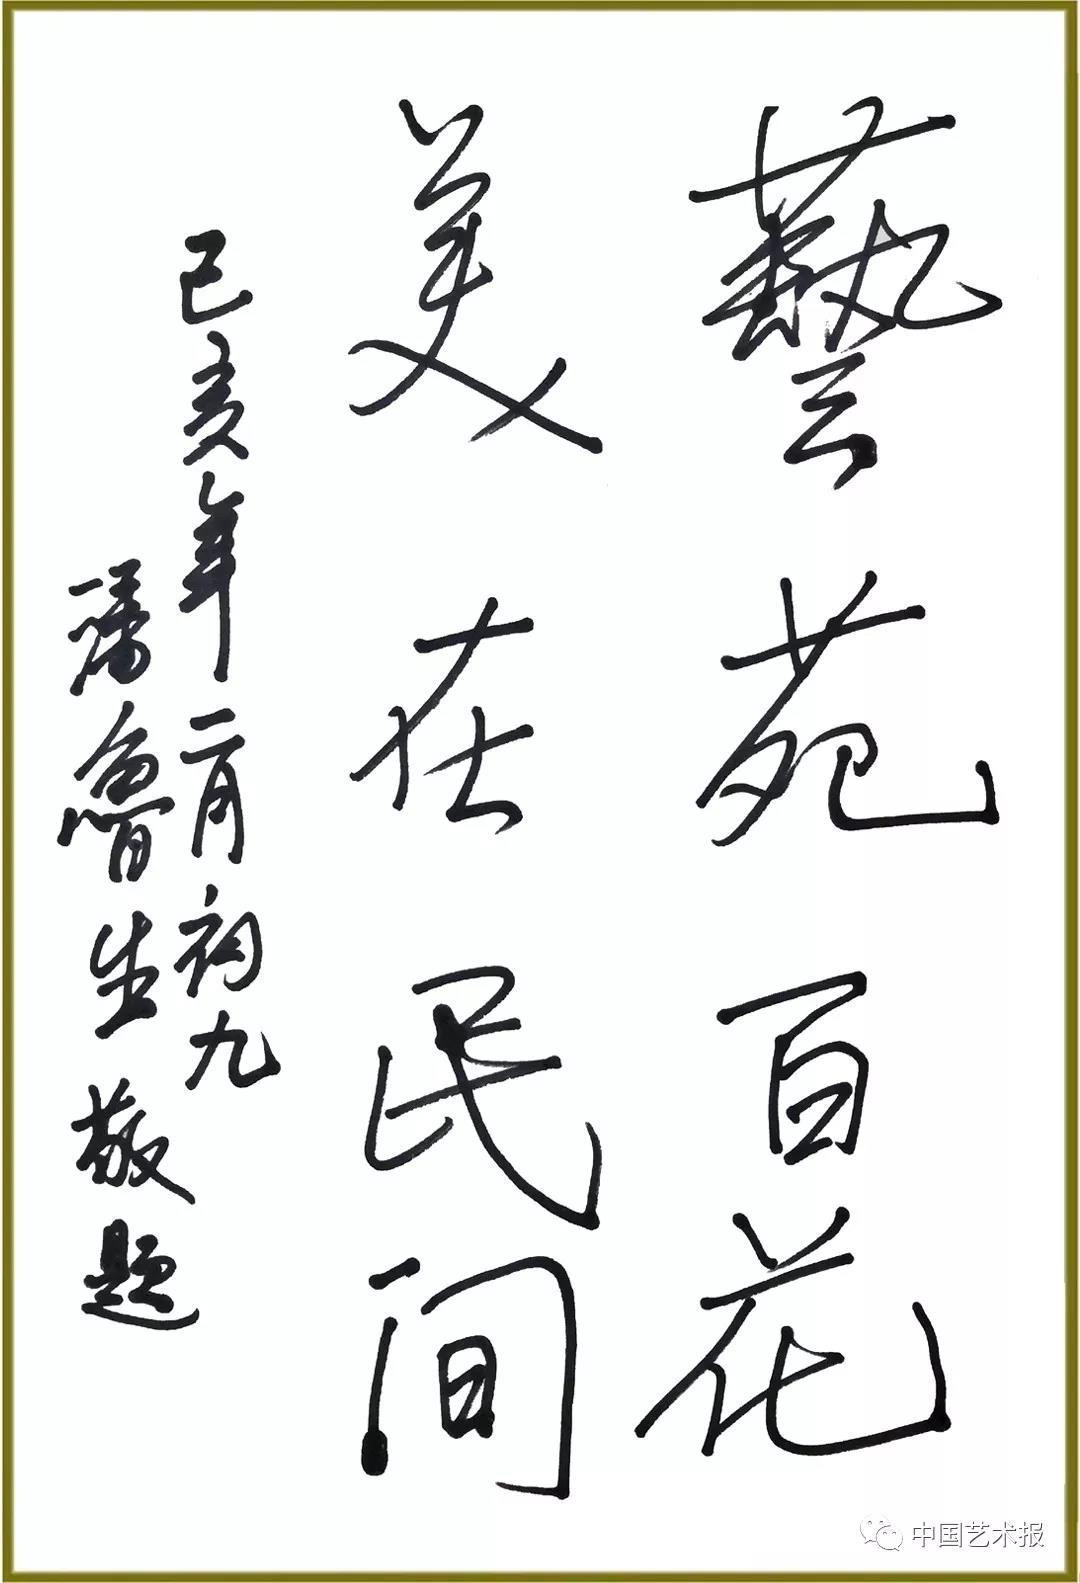 藝苑百花
美在民间
己亥年二月初九
潘魯生敬题
中国艺术报